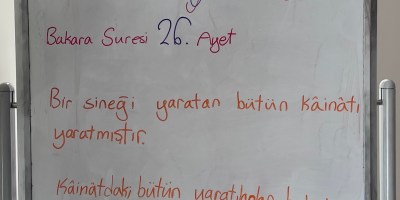 Bakara Suresi 26. Ayet
Bir sineği yaratan bütün kâinatı
yaratmıştır.
Kâinatdaki bütün